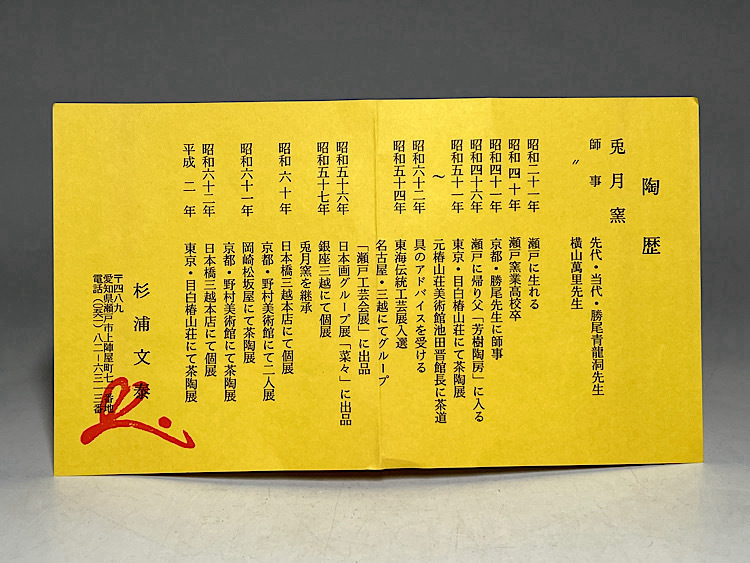 陶歴
兎月窯
師事 先代・当代・勝尾青龍洞先生
〃 横山萬里先生
昭和二十一年 瀬戸に生れる
昭和四十年 瀬戸窯業高校卒
昭和四十一年 京都・勝尾先生に師事
昭和四十六年 瀬戸に帰り父「芳樹陶房」に入る
昭和五十一年 東京・目白椿山荘にて茶陶展
〜 元椿山荘美術館池田晋館長に茶道
昭和六十二年 具のアドバイスを受ける
昭和五十四年 東海伝統工芸展入選
名古屋・三越にてグループ
「瀬戸工芸会展」に出品
昭和五十六年 日本画グループ展「菜々」に出品
昭和五十七年 銀座三越にて個展
兎月窯を継承
昭和六十年 日本橋三越本店にて個展
京都・野村美術館にて二人展
昭和六十一年 岡崎松坂屋にて茶陶展
京都・野村美術館にて茶陶展
昭和六十二年 日本橋三越本店にて個展
平成二年 東京・目白椿山荘にて茶陶展
杉浦文泰
〒四八九
愛知県瀬戸市上陣屋町七 番地
電話(〇五六一)八二ー六三一三番